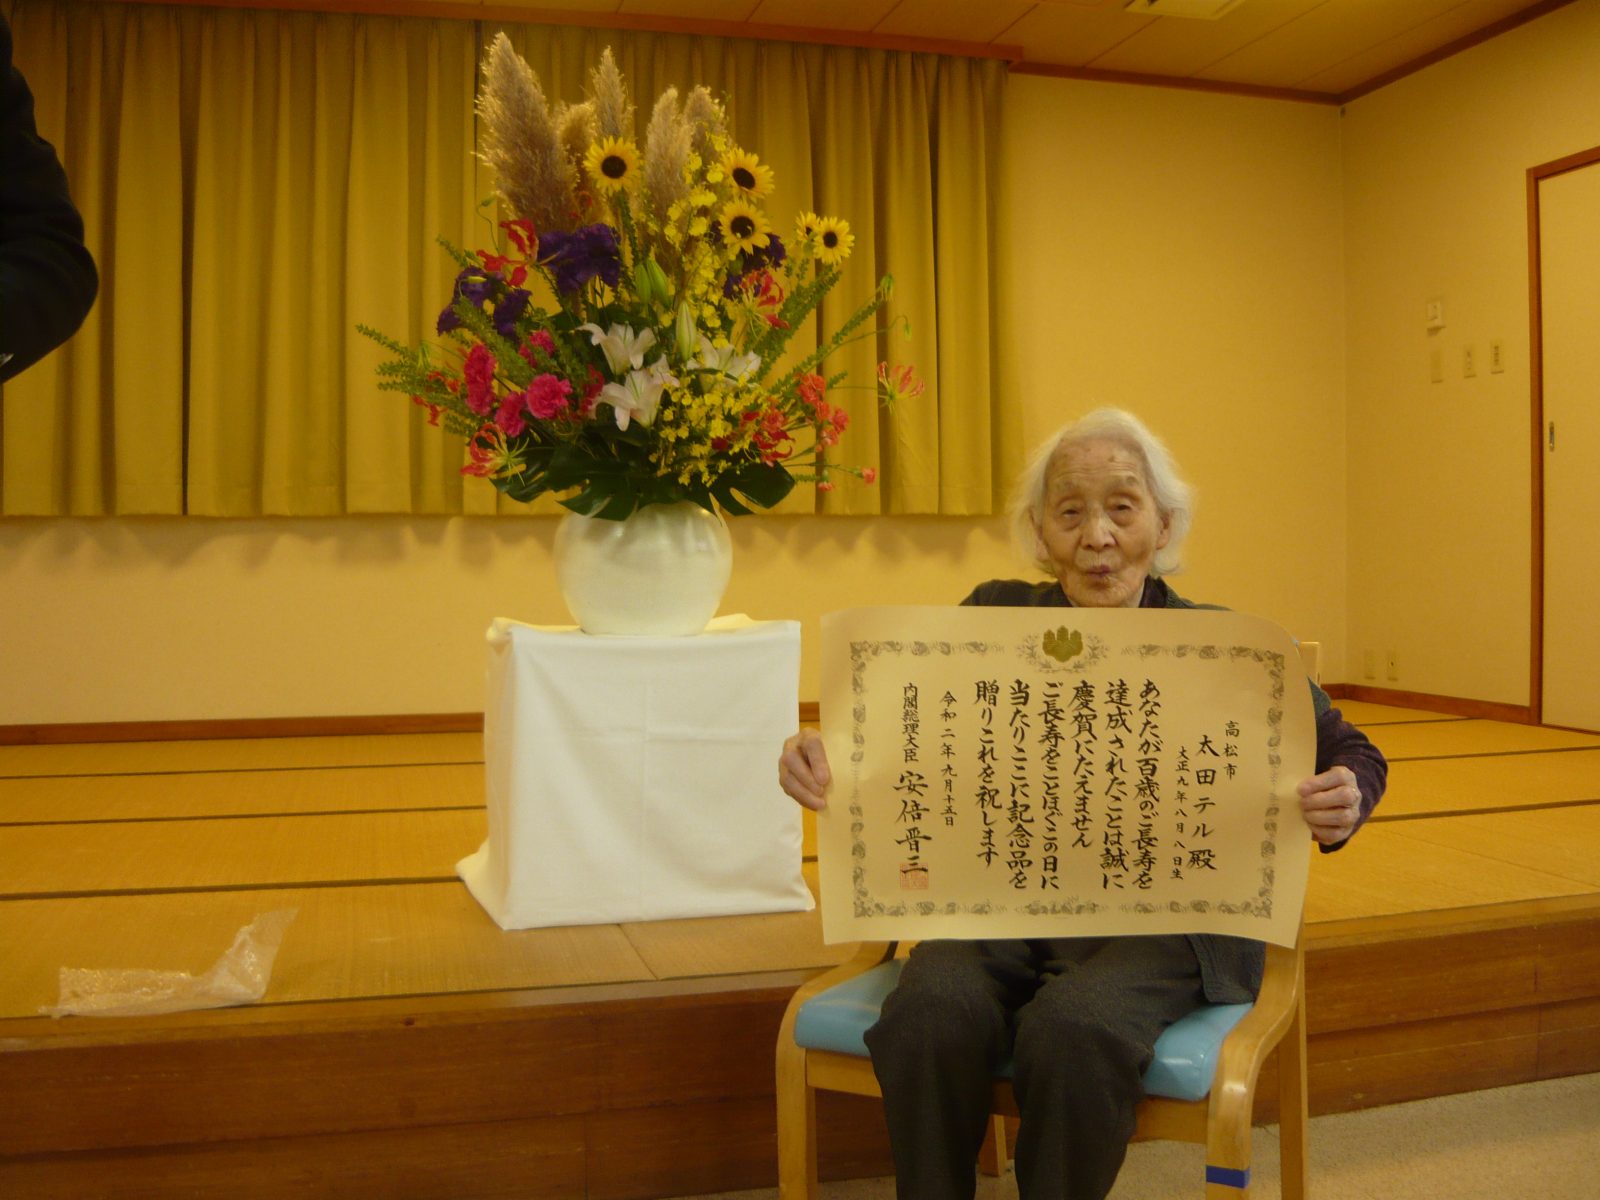 高松市
太田テル殿
大正九年八月八日生
あなたが百歳のご長寿を
達成されたことは誠に
慶賀にたえません
ご長寿をことほぐこの日に
当たりここに記念品を
贈りこれを祝します
令和二年九月十五日
内閣総理大臣 安倍晋三